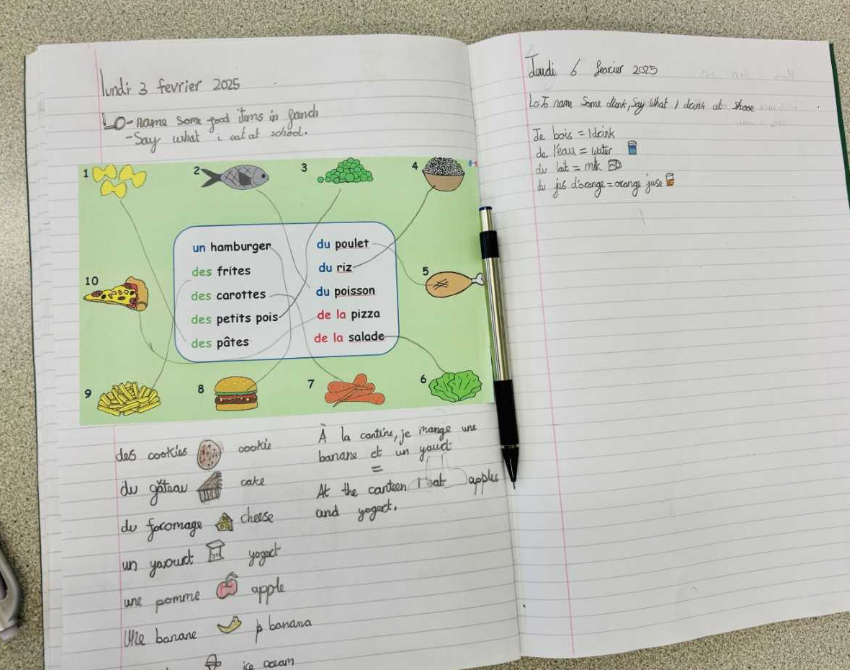 lundi 3 fevrier 2025
LO-name some food items in french
-Say what i eat at school.
1
2
3
4
un hamburger
des frites
des carottes
des petits pois
des pâtes
du poulet
du riz
du poisson
de la pizza
de la salade
10
5
9
8
7
6
des cookies cookie
du gâteau cake
du foromage cheese
un yaourt yogurt
une pomme apple
Une banane banana
ice cream
À la cantine, je mange une
banane et un yaourt
=
At the canteen I eat apples
and yogurt.
Jeudi 6 fevrier 2025
Lo To name Some drink, Say What I drink at
Je bois = I drink
de l'eau = water
du lait = milk
du jus d'orange = orange juse